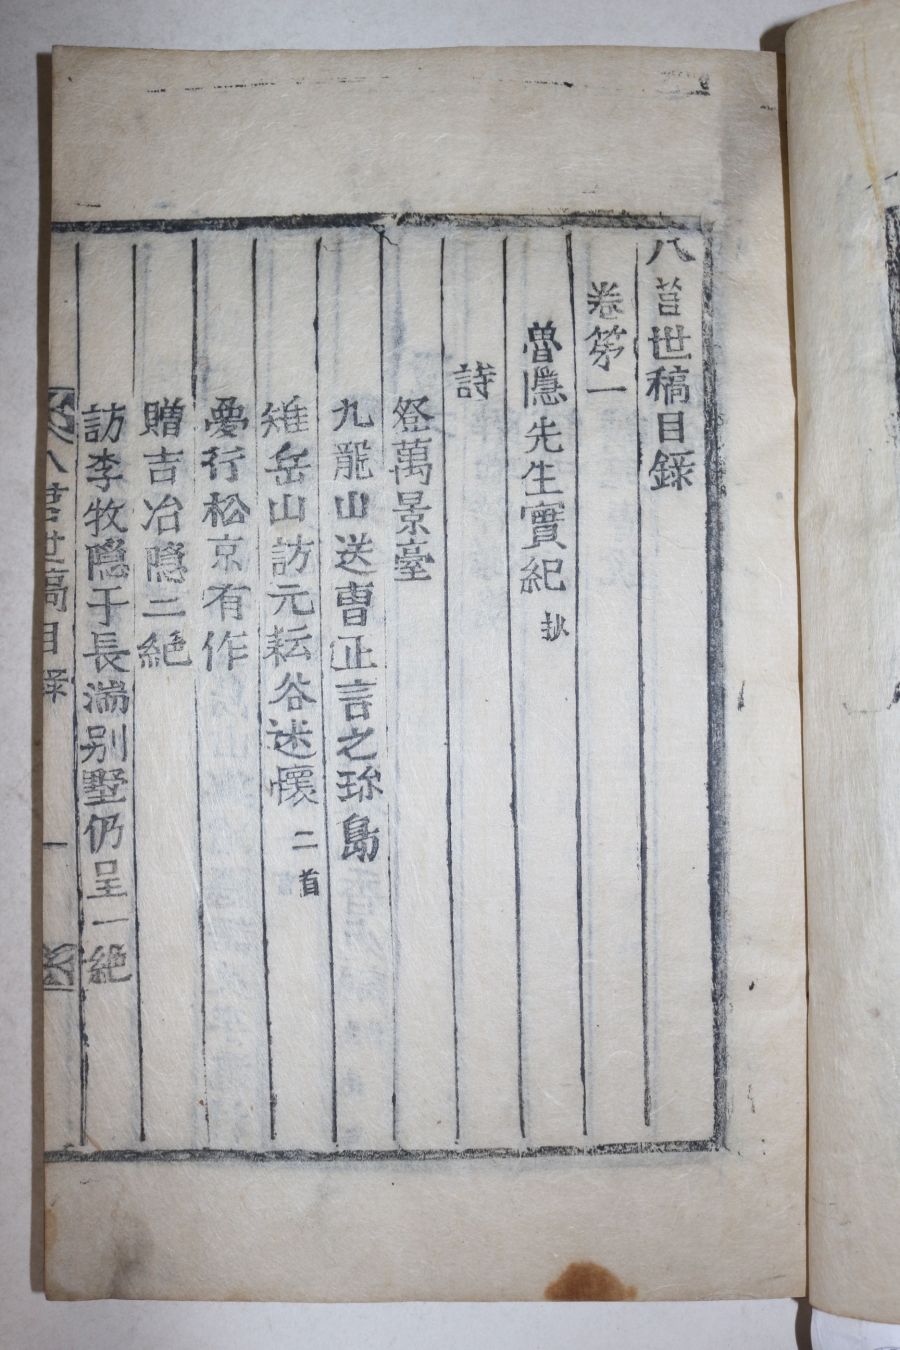 八莒世稿目錄
卷第一
魯隱先生實紀 抄
詩
登萬景臺
九龍山送曺正言之珎島
雉岳山訪元耘谷述懷 二首
憂行松京有作
贈吉冶隱二絶
訪李牧隱于長湍別墅仍呈一絶
八莒世稿目錄 一